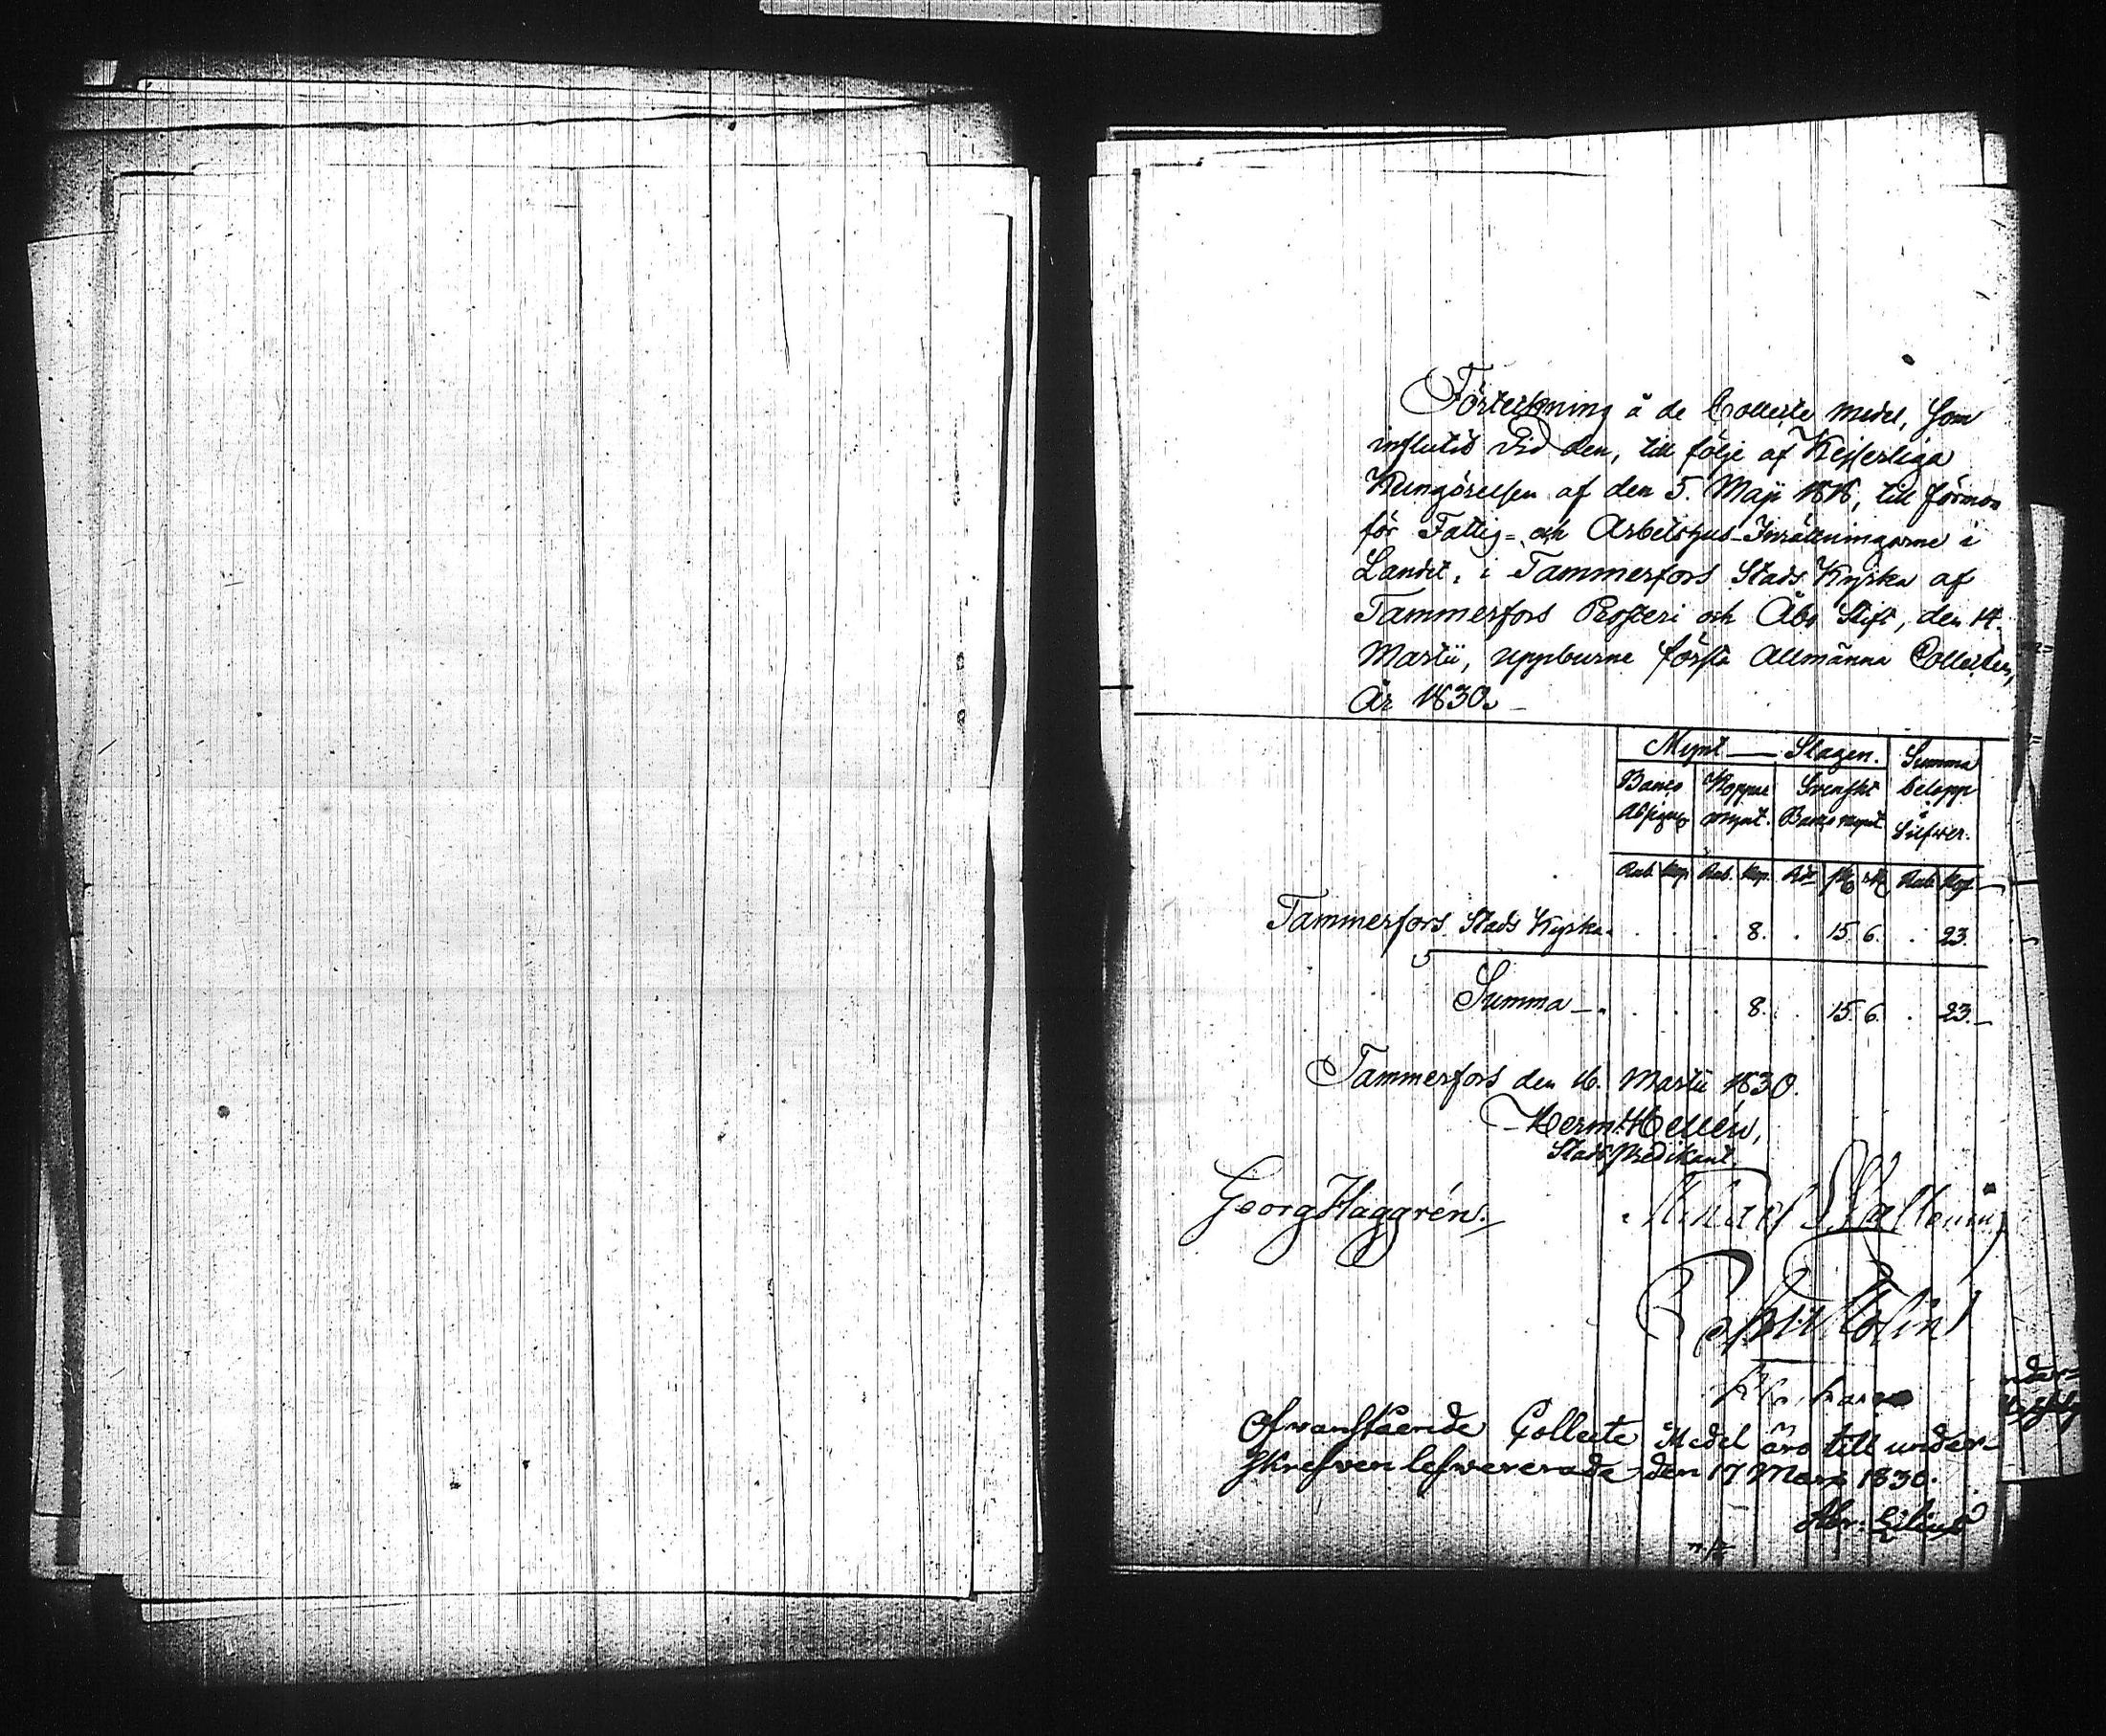 Förteckning å de Collecte medel, som
influtit vid den, till följe af Kejserliga
Kungörelsen af den 5. Maji 1818, till förmon
för Fattig- och Arbetshus-Inrättningarne i
Landet, i Tammerfors Stads Kyrka af
Tammerfors Prosteri och Åbo Stift, den 14.
Martii, uppburne första Allmänna Collecten,
År 1830. —
Mynt — Slagen. Summa
Banco Koppar Svenskt belopp
Assigner mynt. Banco mynt. Silfwer.
Rub. Kop. Rub. Kop. Rdr Rub. Kop.
Tammerfors Stads Kyrka . . . . 8. . 15. 6. . 23.
Summa — . . . . 8. . 15. 6. . 23. —
Tammerfors den 16. Martii 1830.
Herm: Hellén,
Stads Predikant
Georg Haggrén.
Ofvanstående Collecte Medel äro till under-
skrefven lefvererade den 17 Mars 1830.
Abr. Lilius